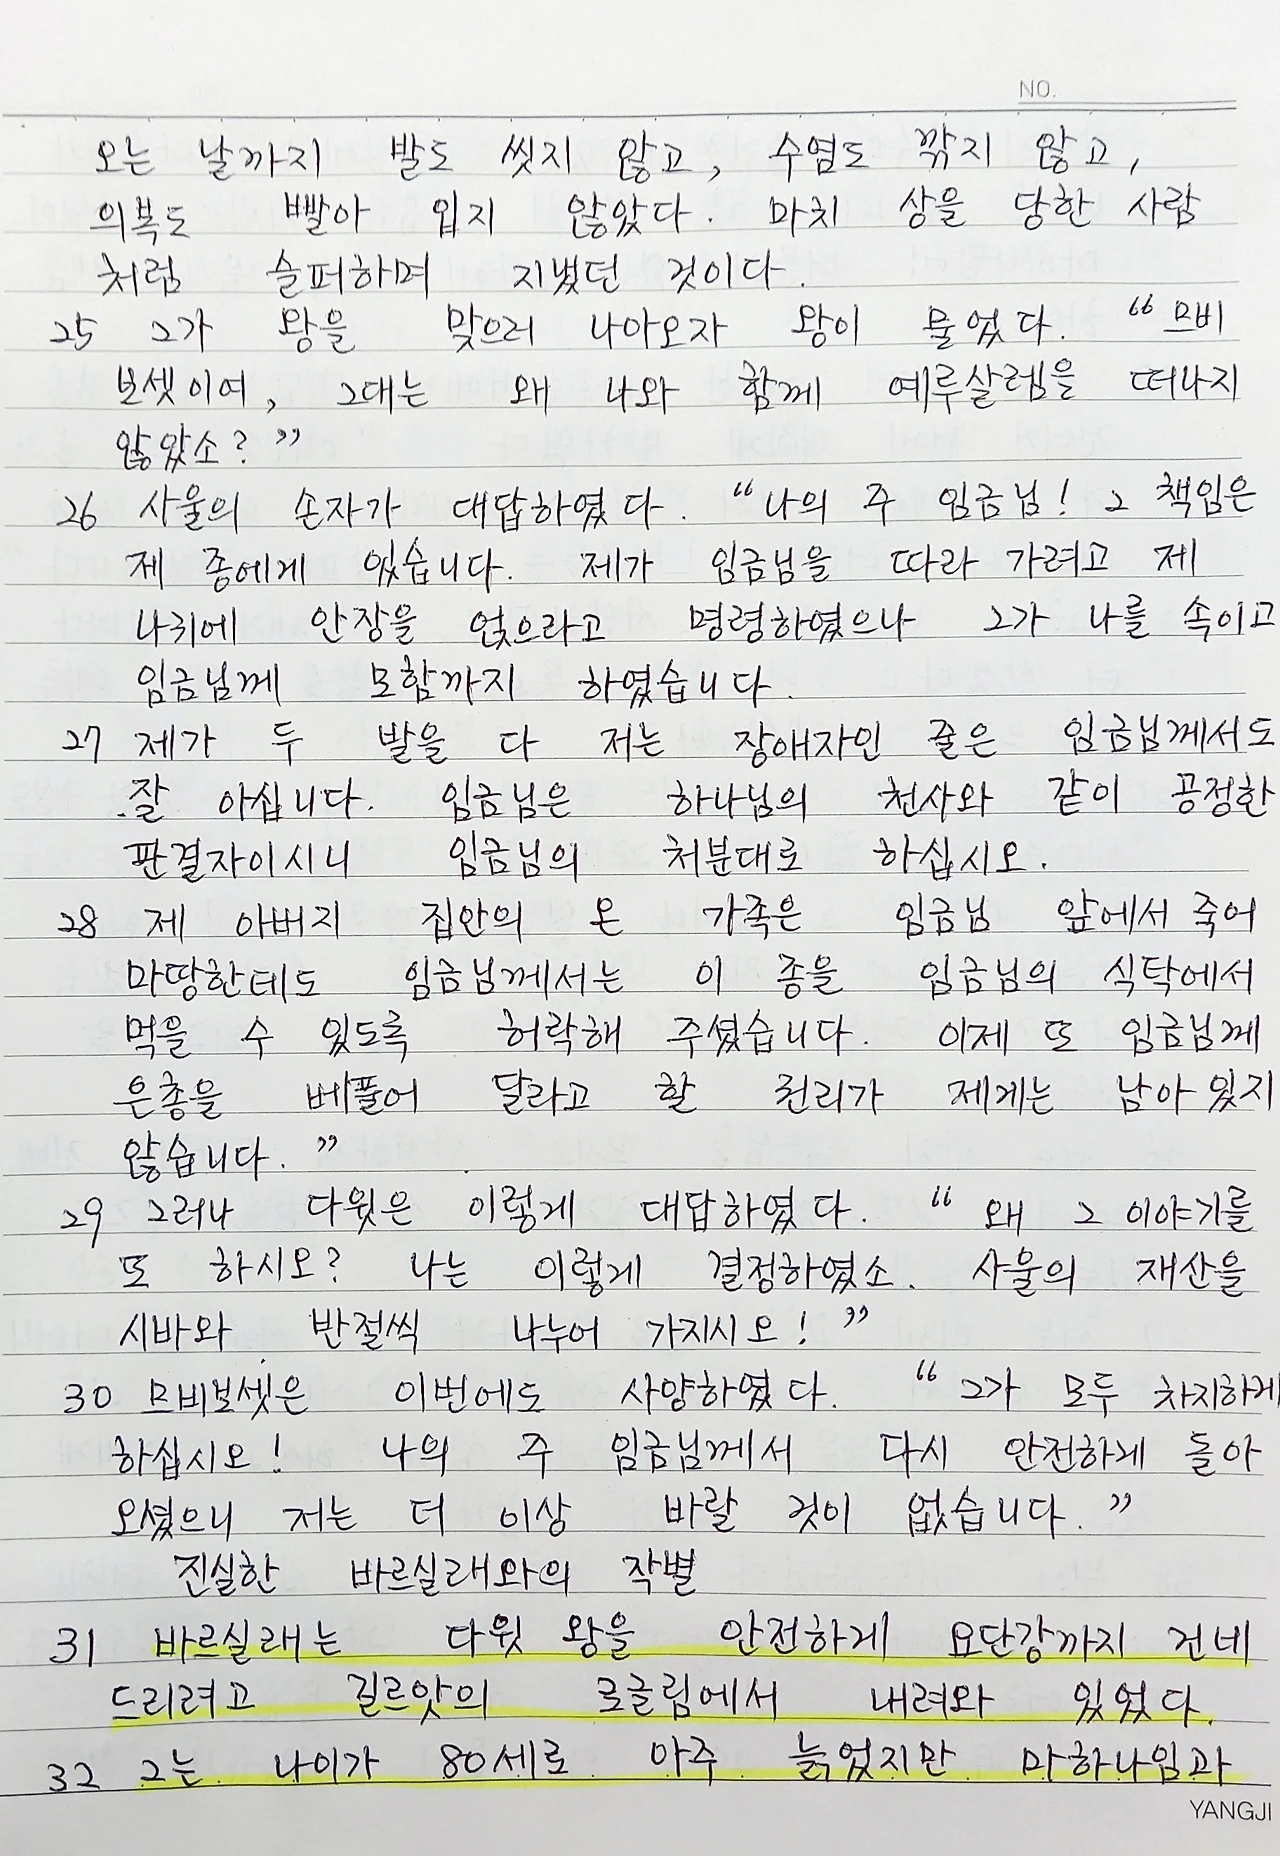 NO.
오는 날까지 발도 씻지 않고, 수염도 깎지 않고,
의복도 빨아 입지 않았다. 마치 상을 당한 사람
처럼 슬퍼하며 지냈던 것이다.
25 그가 왕을 맞으러 나아오자 왕이 물었다. “므비
보셋이여, 그대는 왜 나와 함께 예루살렘을 떠나지
않았소?”
26 사울의 손자가 대답하였다. “나의 주 임금님! 그 책임은
제 종에게 있습니다. 제가 임금님을 따라 가려고 제
나귀에 안장을 얹으라고 명령하였으나 그가 나를 속이고
임금님께 모함까지 하였습니다.
27 제가 두 발을 다 저는 장애자인 줄은 임금님께서도
잘 아십니다. 임금님은 하나님의 천사와 같이 공정한
판결자이시니 임금님의 처분대로 하십시오.
28 제 아버지 집안의 온 가족은 임금님 앞에서 죽어
마땅한데도 임금님께서는 이 종을 임금님의 식탁에서
먹을 수 있도록 허락해 주셨습니다. 이제 또 임금님께
은총을 베풀어 달라고 할 권리가 제게는 남아 있지
않습니다.”
29 그러나 다윗은 이렇게 대답하였다. “왜 그 이야기를
또 하시오? 나는 이렇게 결정하였소. 사울의 재산을
시바와 반절씩 나누어 가지시오!”
30 므비보셋은 이번에도 사양하였다. “그가 모두 차지하게
하십시오! 나의 주 임금님께서 다시 안전하게 돌아
오셨으니 저는 더 이상 바랄 것이 없습니다.”
진실한 바르실래와의 작별
31 바르실래는 다윗 왕을 안전하게 요단강까지 건네
드리려고 길르앗의 로글림에서 내려와 있었다.
32 그는 나이가 80세로 아주 늙었지만 마하나임과
YANGJI